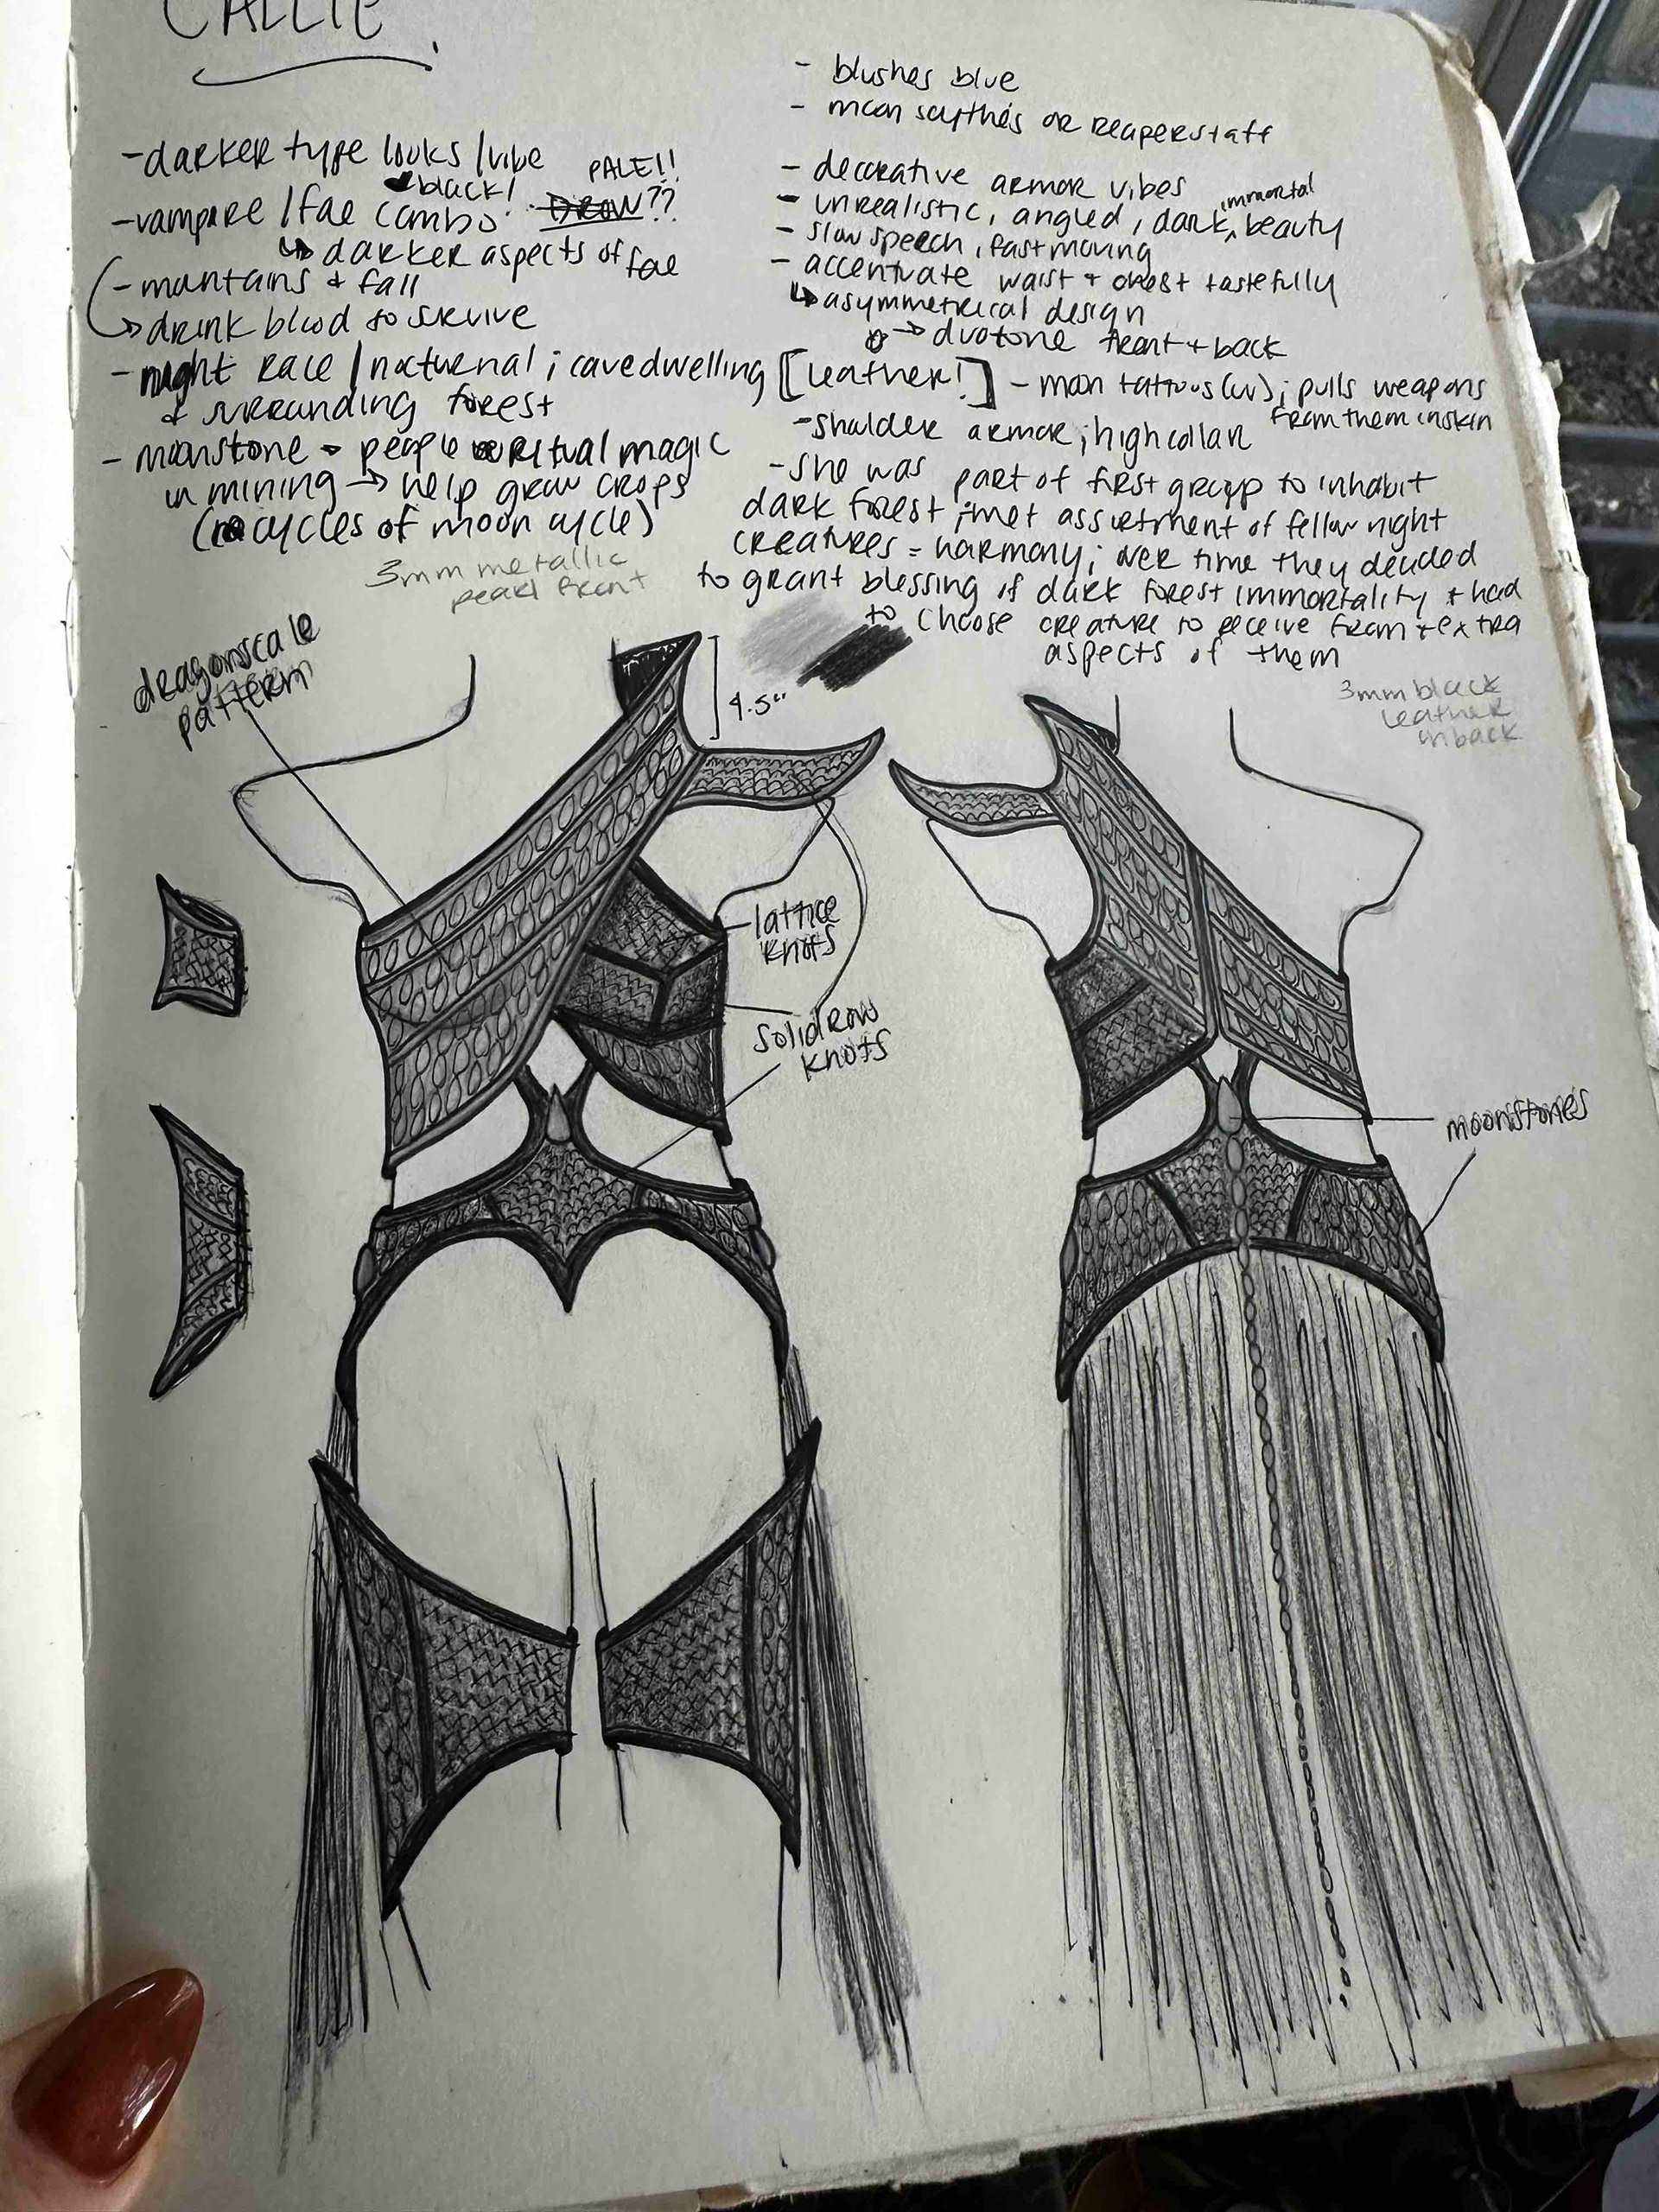 CALLIE
- darker type looks / vibe
black! PALE!!
- vampire / fae combo. DROW??
↳ darker aspects of fae
- mountains & fall
→ drink blood to survive
- night race / nocturnal ; cavedwelling
& surrounding forest
- moonstone → people ritual magic
in mining → help grow crops
(cycles of moon cycle)
3mm metallic
pearl front
- blushes blue
- moon scythes or reaperstaff
- decorative armor vibes
- unrealistic, angled, dark, immortal beauty
- slow speech, fast moving
- accentuate waist + chest tastefully
↳ asymmetrical design
→ duotone front + back
[leather!] - moon tattoos (uv) ; pulls weapons
from them in skin
- shoulder armor ; high collar
- she was part of first group to inhabit
dark forest ; met assortment of fellow night
creatures = harmony ; over time they decided
to grant blessing of dark forest immortality & had
to choose creature to receive from + extra
aspects of them
dragonscale
pattern
4.5"
3mm black
leather
in back
lattice
knots
solid row
knots
moonstones